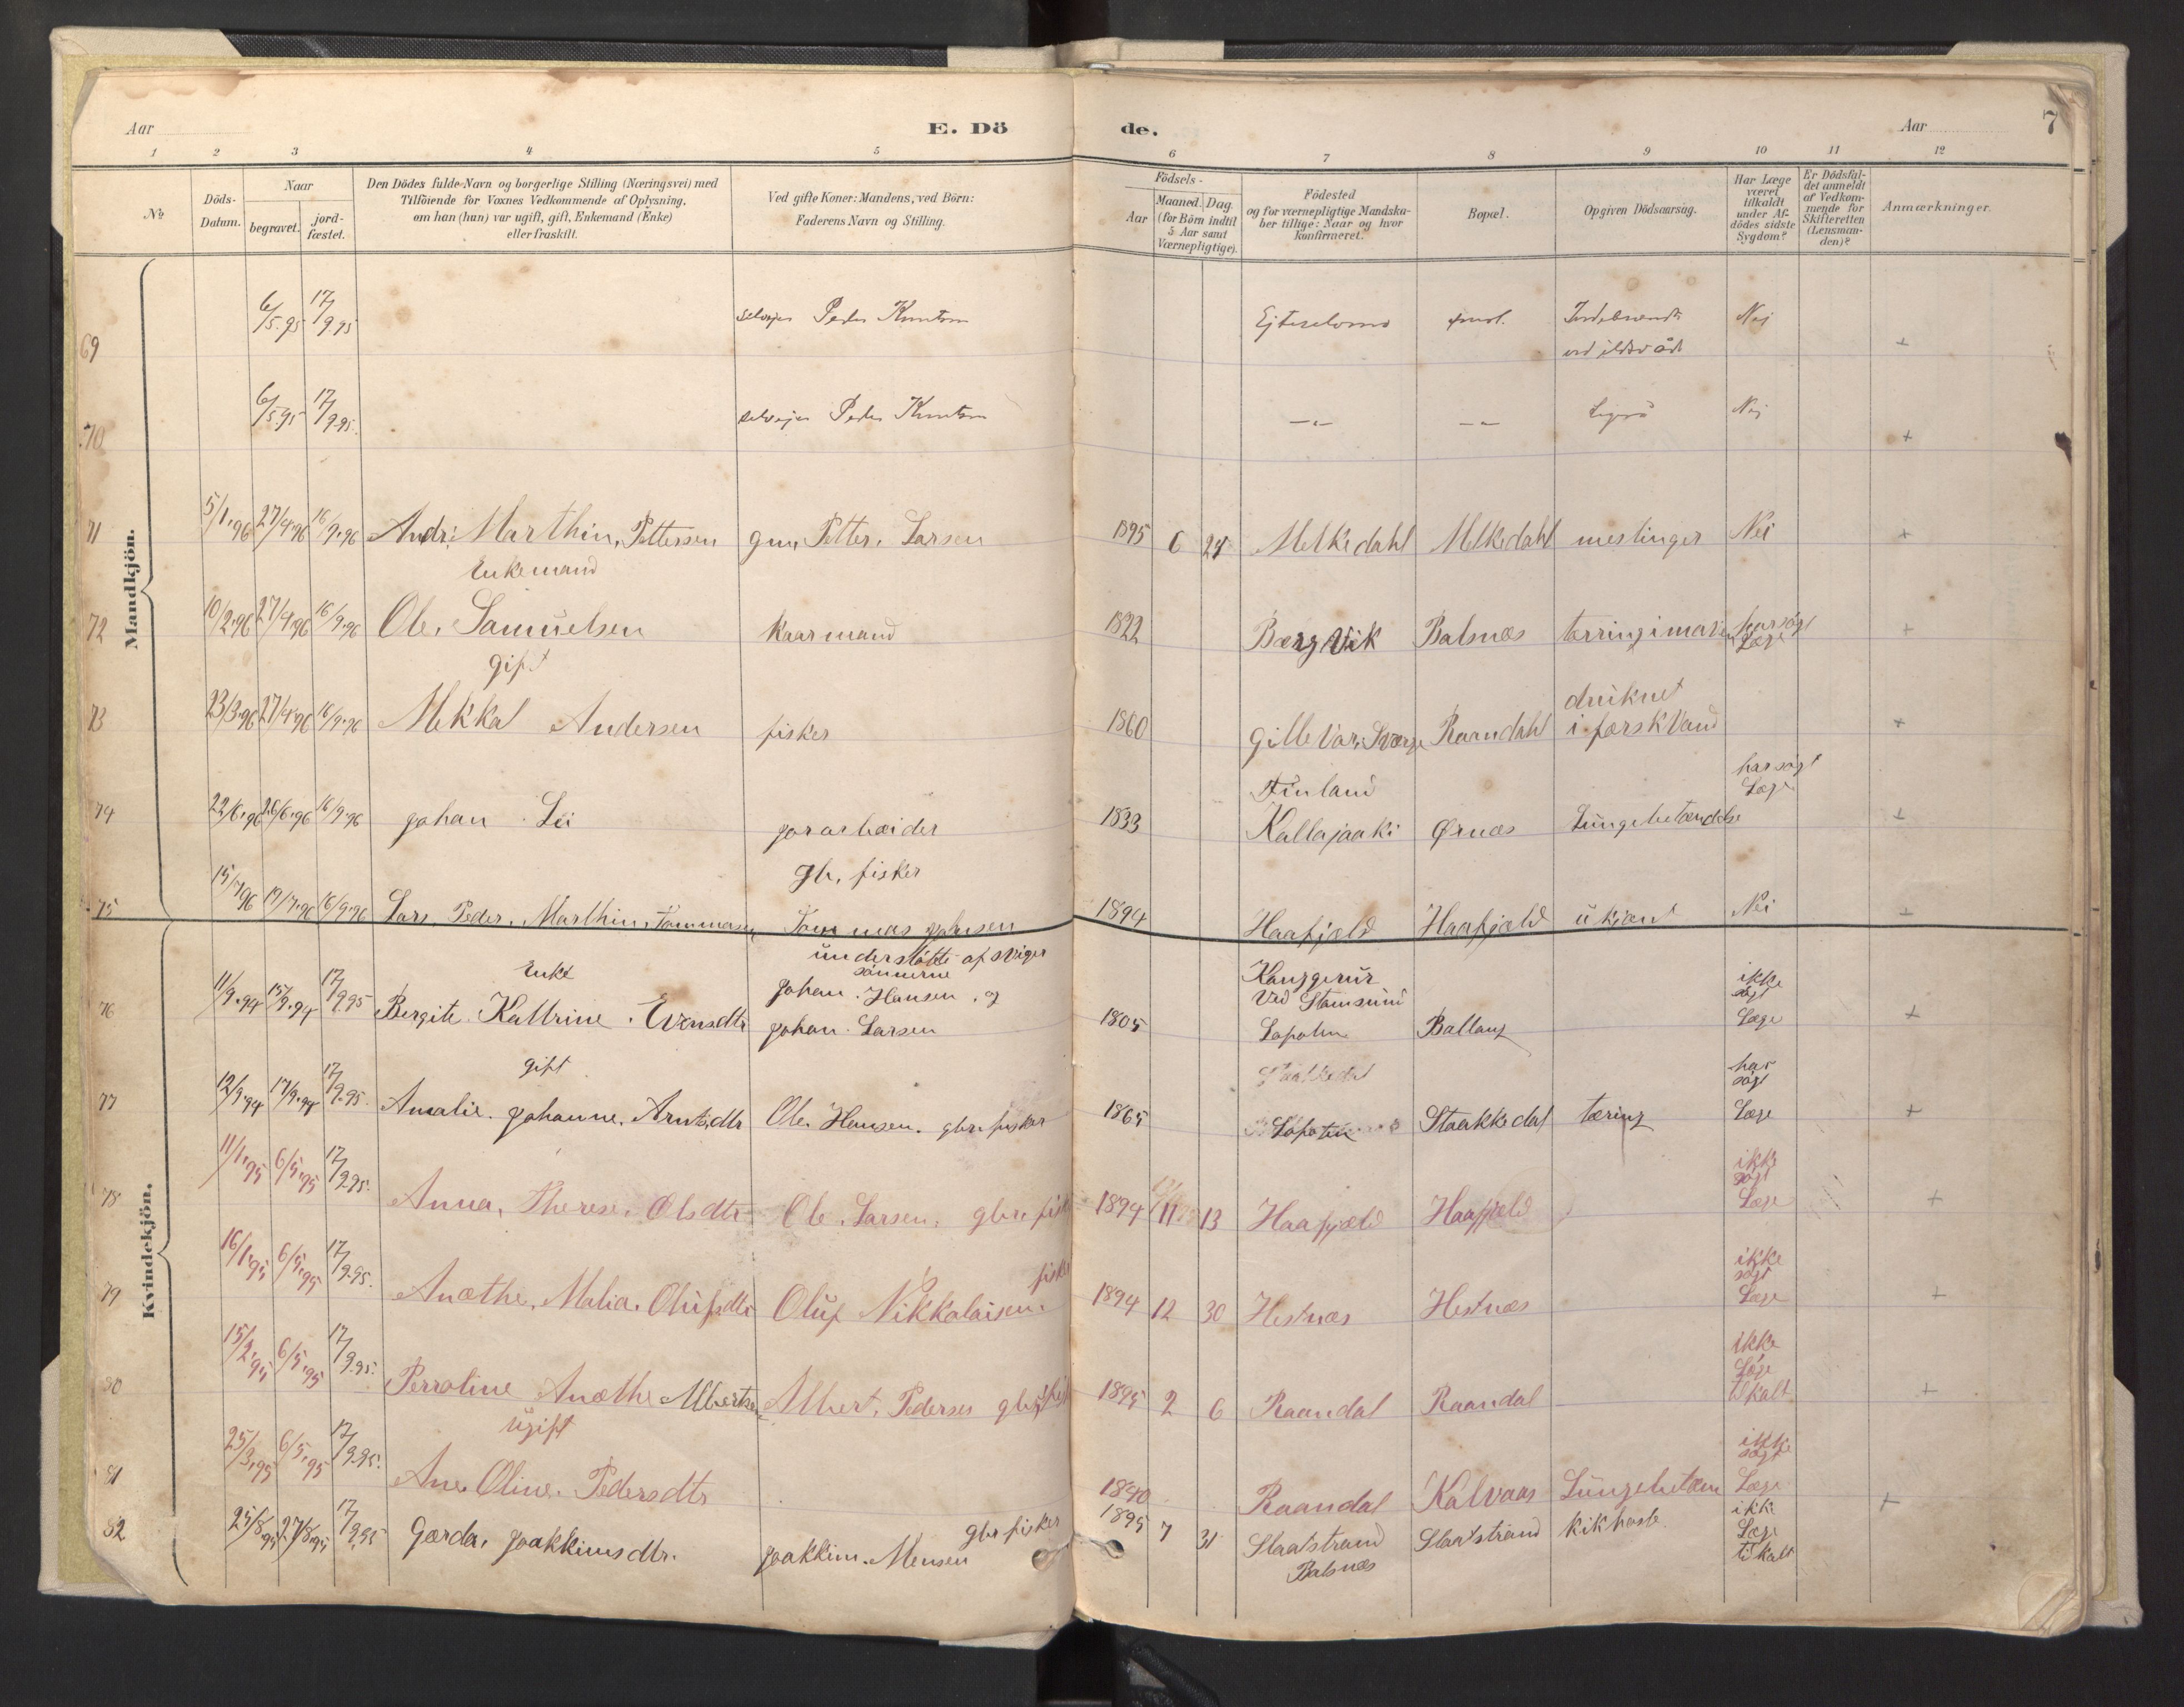 Aar E. Dö de. Aar 7
1 2 3 4 5 6 7 8 9 10 11 12
№
Döds-Datum.
Naar
begravet.
jord-fæstet.
Den Dödes fulde Navn og borgerlige Stilling (Næringsvei) med
Tilföiende for Voxnes Vedkommende af Oplysning,
om han (hun) var ugift, gift, Enkemand (Enke)
eller fraskilt.
Ved gifte Koner: Mandens, ved Börn:
Faderens Navn og Stilling.
Födsels-
Aar
Maaned. Dag.
(for Börn indtil
5 Aar samt
Værnepligtige).
Födested
og for værnepligtige Mandska-
ber tillige: Naar og hvor
konfirmeret.
Bopæl.
Opgiven Dödsaarsag.
Har Læge
været
tilkaldt
under Af-
dödes sidste
Sygdom?
Er Dödsfal-
det anmeldt
af Vedkom-
mende for
Skifteretten
(Lensman-
den)?
Anmærkninger.
Mandkjön.
69 6/5.95 17/9 95 selvejer Peder Knutsen Nej +
ved ildsvåde
70 6/5 95 17/9 95. selvejer Peder Knutsen —„— —„— Nej +
71 5/1.96 27/4.96 16/9.96 Andr: Marthin, Pettersen gm, Petter. Larsen 1895 6 24 Melkedahl Melkedahl meslinger Nei +
Enkemand
72 10/2.96 27/4.96 16/9.96 Ole, Samuelsen Kaarmand 1822 Bærg Vik Balsnæs har søgt Læge +
gift
73 23/3.96 27/4.96 16/9.96 Mekkal Andersen fisker 1860 Gille Var, Sværge Raandahl druknet i færsk Vand +
74 22/6.96 26/6.96 16/9.96 Johan Lii jorarbeider 1833 Finland Kallajaaki Ørnæs Lungebetændelse har søgt Læge +
gbr, fisker
75 15/7 96 19/7.96 16/9.96 Lars, Peder, Marthin, Tommasen Tommas Johnsen 1894 Haafjæld Haafjæld ukjænt Nei +
Kvindekjön.
Enke
76 11/9.94 15/9.94 17/9 95 Bergite Kattrine Evensdtr understøtte af sviger
sønnerne
Johan. Hansen, og
Johan. Larsen
1805
Ved Stamsund
Lofoten Ballang
ikke søgt Læge +
gift
77 12/9.94 17/9.94 17/9.95. Amalie. Johanne. Arntsdtr Ole, Hansen. gbr fisker 1865 Lofoten Staakkedal tæring har søgt Læge +
78 11/1.95 6/5.95 17/9 95. Anna, Therese, Olsdtr Ole, Larsen, gbr fisk 1894 11 13 Haafjæld Haafjæld ikke søgt Læge +
79 16/1.95 6/5.95 17/9.95. Anæthe, Malia, Olufsdtr Oluf Nikkolaisen. fisker 1894 12 30 Hestnæs Hestnæs ikke søgt Læge +
80 15/2.95 6/5.95 17/9.95. Perroline Anæthe Albertsen Albert, Pedersen gbr fisk 1895 2 6 Raandal Raandal ikke Læge tilkalt +
ugift
81 25/3.95 6/5.95 17/9.95. Ane, Oline. Pedersdtr 1840 Raandal Kalvaas Lungebetæn ikke søgt Læge +
82 25/8.95 27/8.95 17/9.95 Gærda, Joakkimsdtr. Joakkim. Mensen gbr fisker 1895 7 31 Slaatstrand Slaatstrand Kikhoste ikk Læge tilkalt
Balsnæs